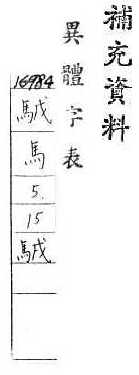 補充資料
異體字表
16984
馬
5.
15